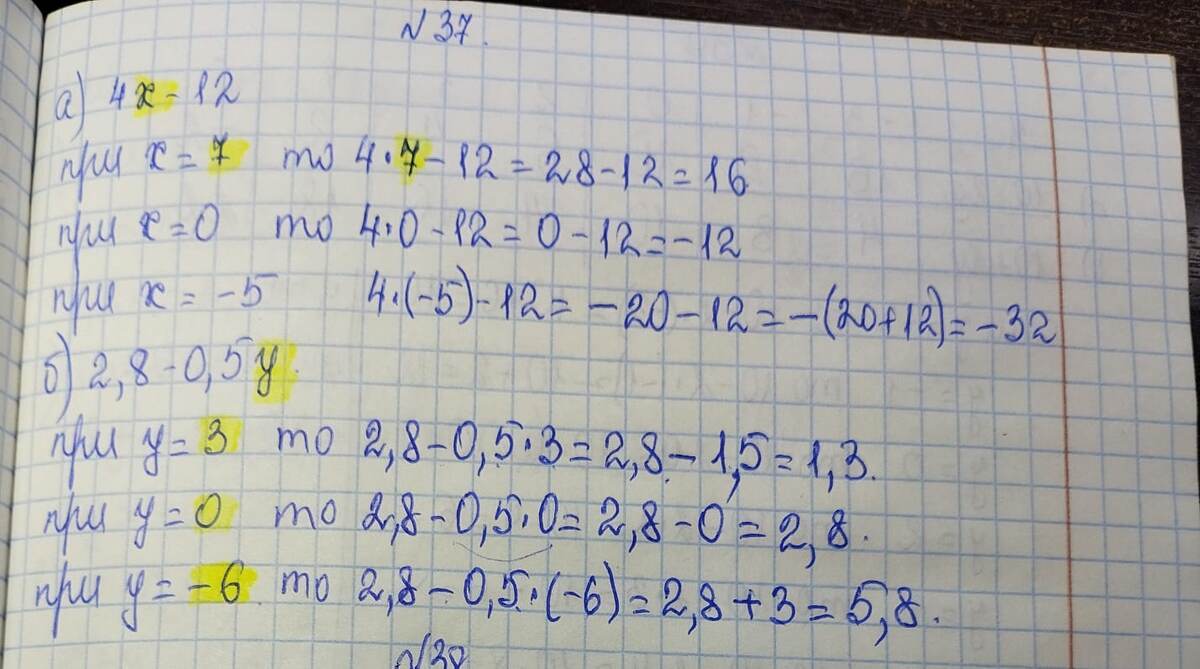 №37.
а) 4x - 12
при x = 7 то 4·7 - 12 = 28 - 12 = 16
при x = 0 то 4·0 - 12 = 0 - 12 = -12
при x = -5 4·(-5) - 12 = -20 - 12 = -(20+12) = -32
б) 2,8 - 0,5y.
при y = 3 то 2,8 - 0,5·3 = 2,8 - 1,5 = 1,3.
при y = 0 то 2,8 - 0,5·0 = 2,8 - 0 = 2,8.
при y = -6 то 2,8 - 0,5·(-6) = 2,8 + 3 = 5,8.
№38